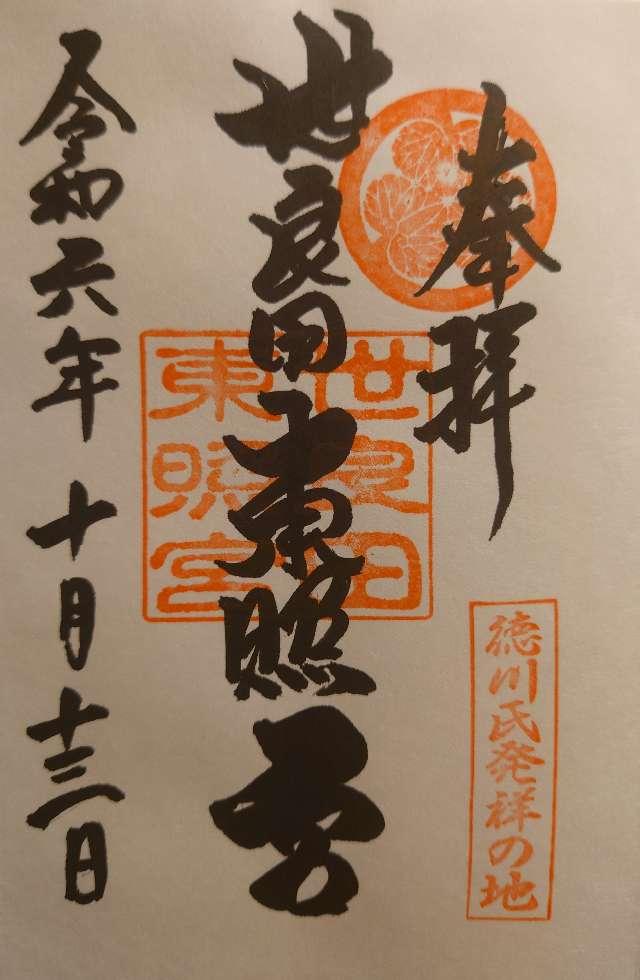 奉拝
徳川氏発祥の地
世良田東照宮
世良田
東照宮
令和六年十月十三日